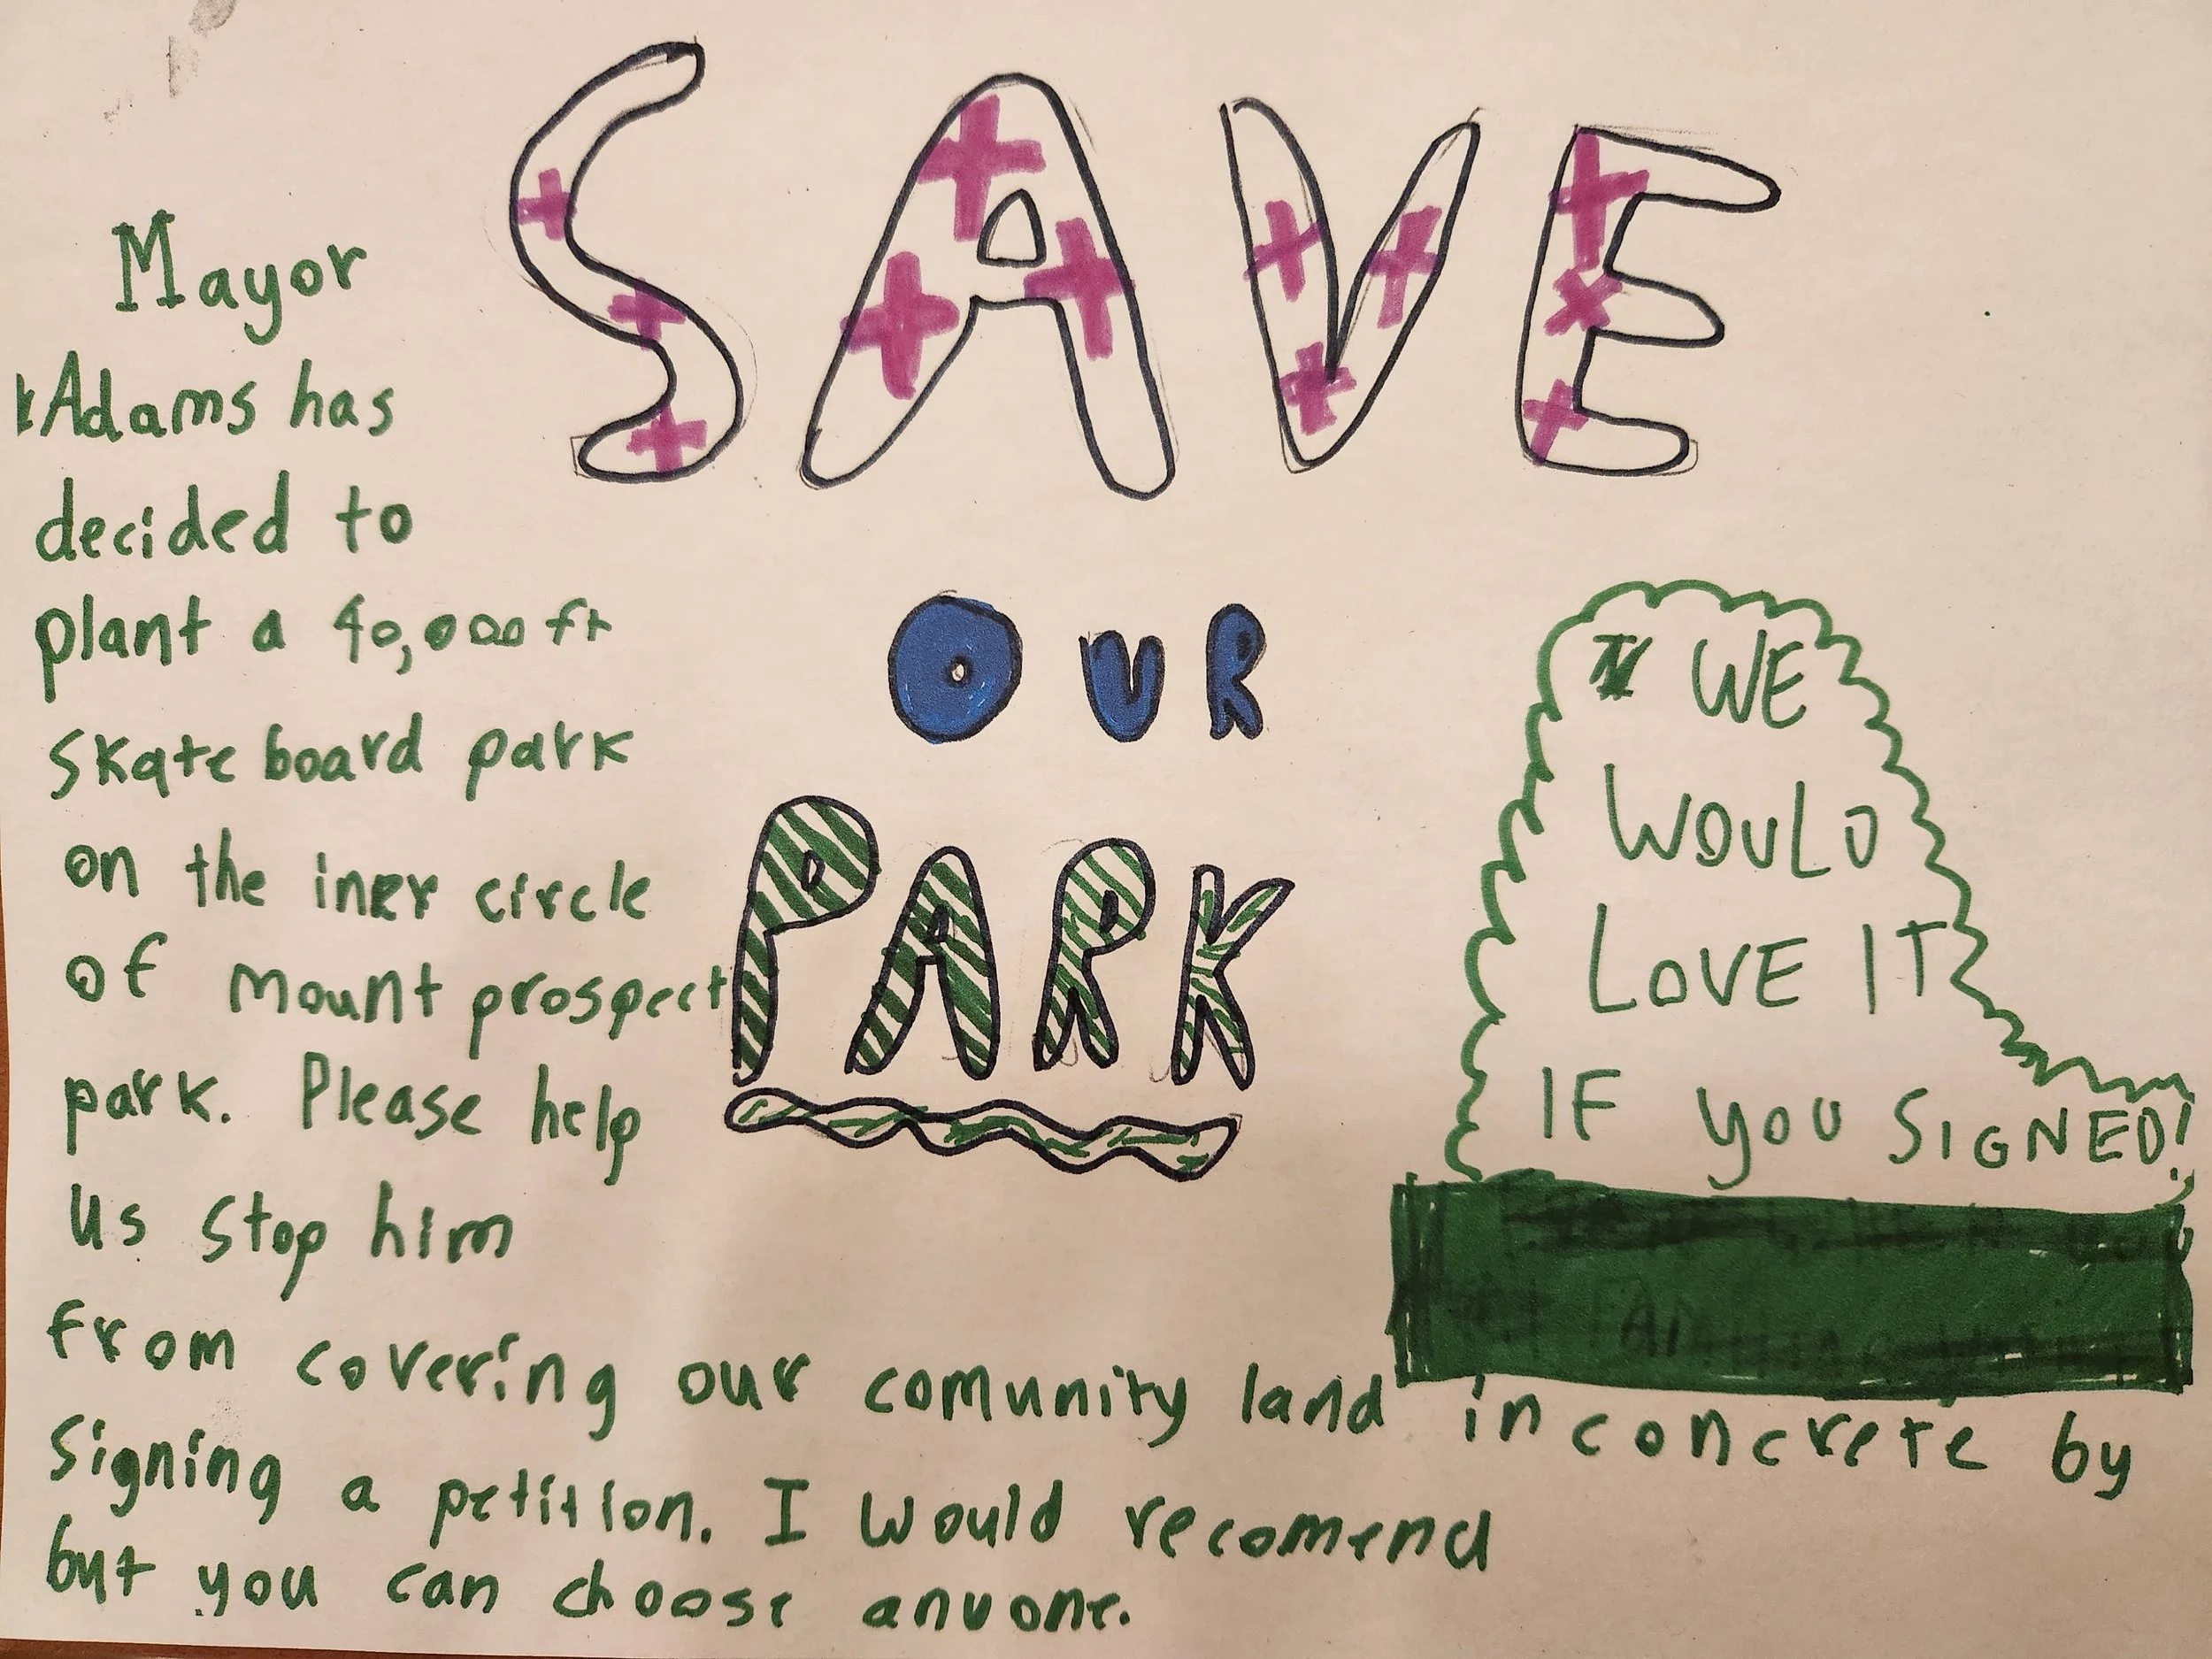 SAVE
OUR
PARK
Mayor
Adams has
decided to
plant a 40,000 ft
skate board park
on the iner circle
of mount prospect
park. Please help
us stop him
from covering our comunity land in concrete by
signing a petition. I would recomend
but you can choose anyone.
WE
WOULD
LOVE IT
IF YOU SIGNED!